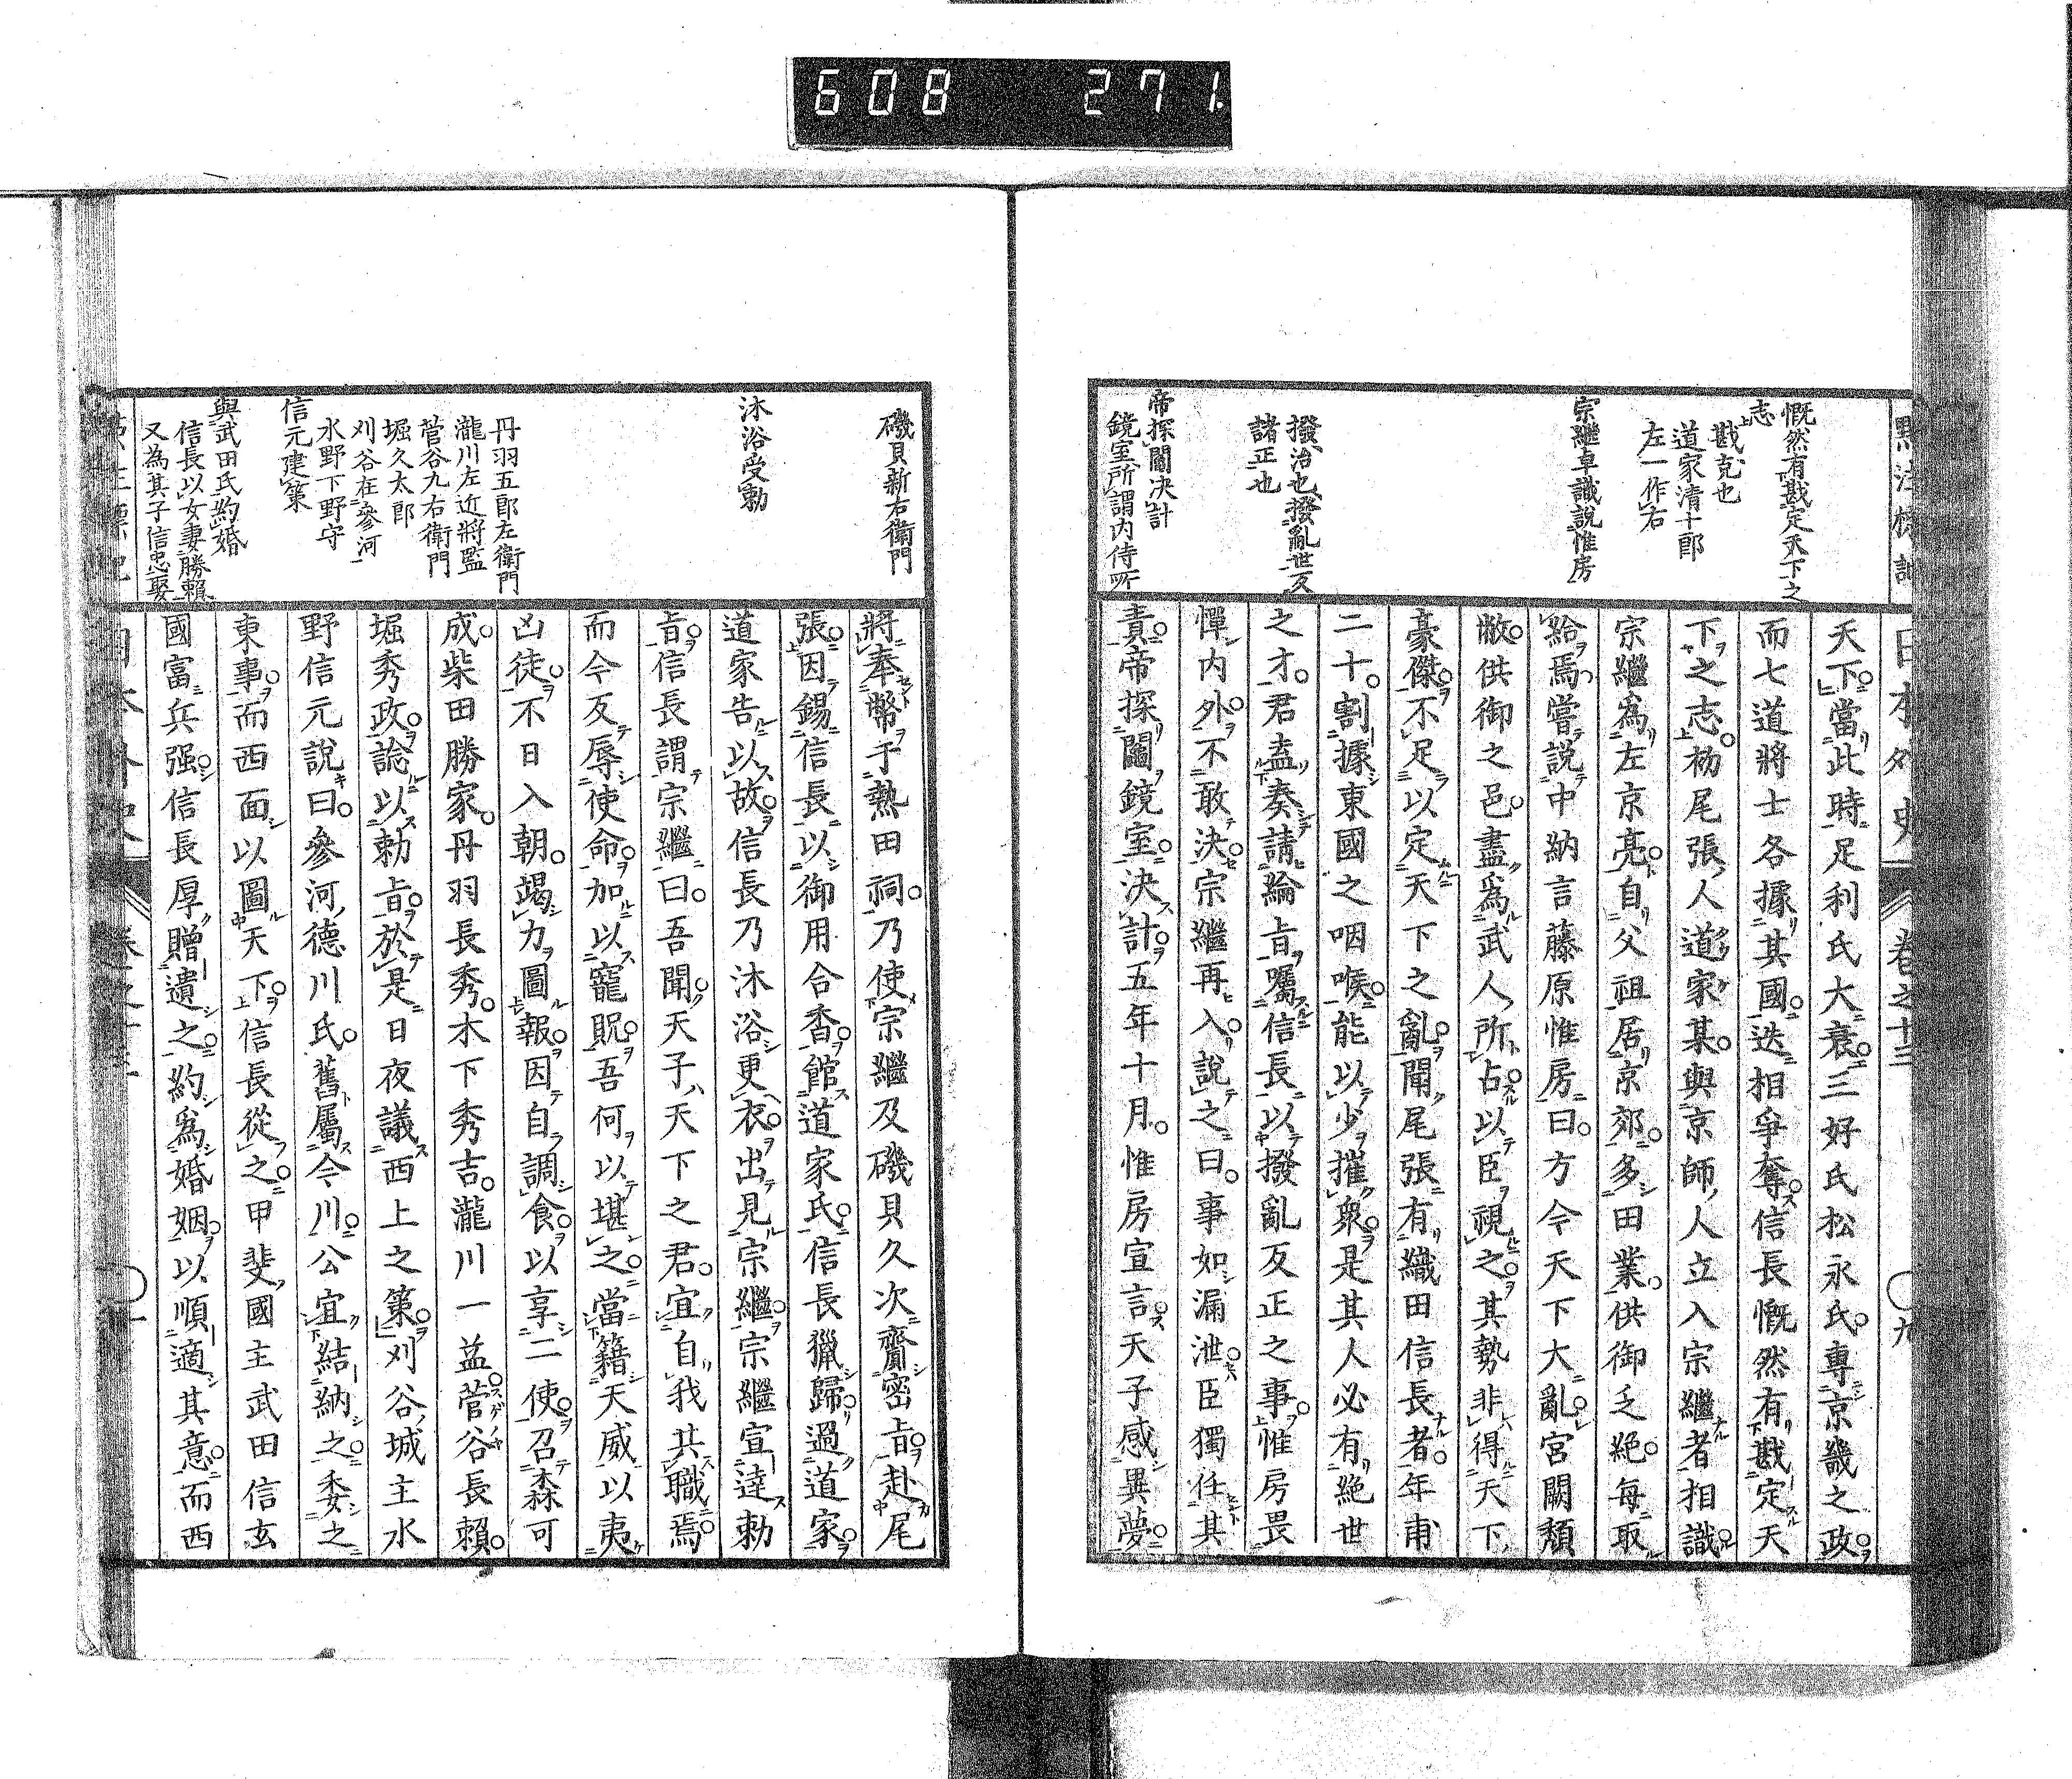 608 271.
日本外史 卷之十三 〇九
慨然有戡定天下之
志
戡克也
道家清十郎
左一作右
宗繼卓識說惟房
撥治也撥亂世反
諸正也
帝探鬮決計
鏡室所謂内侍所
天下當此時足利氏大衰三好氏松永氏專京畿之政
而七道將士各據其國迭相爭奪信長慨然有戡定天
下之志栃尾張人道家某與京師人立入宗繼者相識
宗繼爲左京亮自父祖居京郊多田業供御乏絕每取
給焉嘗說中納言藤原惟房曰方今天下大亂宮闕頽
敝供御之邑盡爲武人所占以臣視之其勢非得天下
豪傑不足以定天下之亂聞尾張有織田信長者年甫
二十割據東國之咽喉能以少摧衆是其人必有絕世
之才君盍奏請綸旨囑信長以撥亂反正之事惟房畏
憚内外不敢決宗繼再入說之曰事如漏泄臣獨任其
責帝探鬮鏡室決計五年十月惟房宣言天子感異夢
磯貝新右衞門
沐浴受勅
丹羽五郎左衞門
瀧川左近將監
菅谷九右衞門
堀久太郎
刈谷在參河
水野下野守
信元建策
與武田氏約婚
信長以女妻勝賴
又為其子信忠娶
將奉幣于熱田祠乃使宗繼及磯貝久次齎密旨赴尾
張因錫信長以御用合香館道家氏信長獵歸過道家
道家告以故信長乃沐浴更衣出見宗繼宗繼宣達勅
旨信長謂宗繼曰吾聞天子天下之君宜自我共職焉
而今反辱使命加以寵貺吾何以堪之當籍天威以夷
凶徒不日入朝竭力圖報因自調食以享二使召森可
成柴田勝家丹羽長秀木下秀吉瀧川一益菅谷長賴
堀秀政諗以勅旨於是日夜議西上之策刈谷城主水
野信元說曰參河德川氏舊屬今川公宜結納之委之
東事而西面以圖天下信長從之甲斐國主武田信玄
國富兵强信長厚贈遺之約爲婚姻以順適其意而西